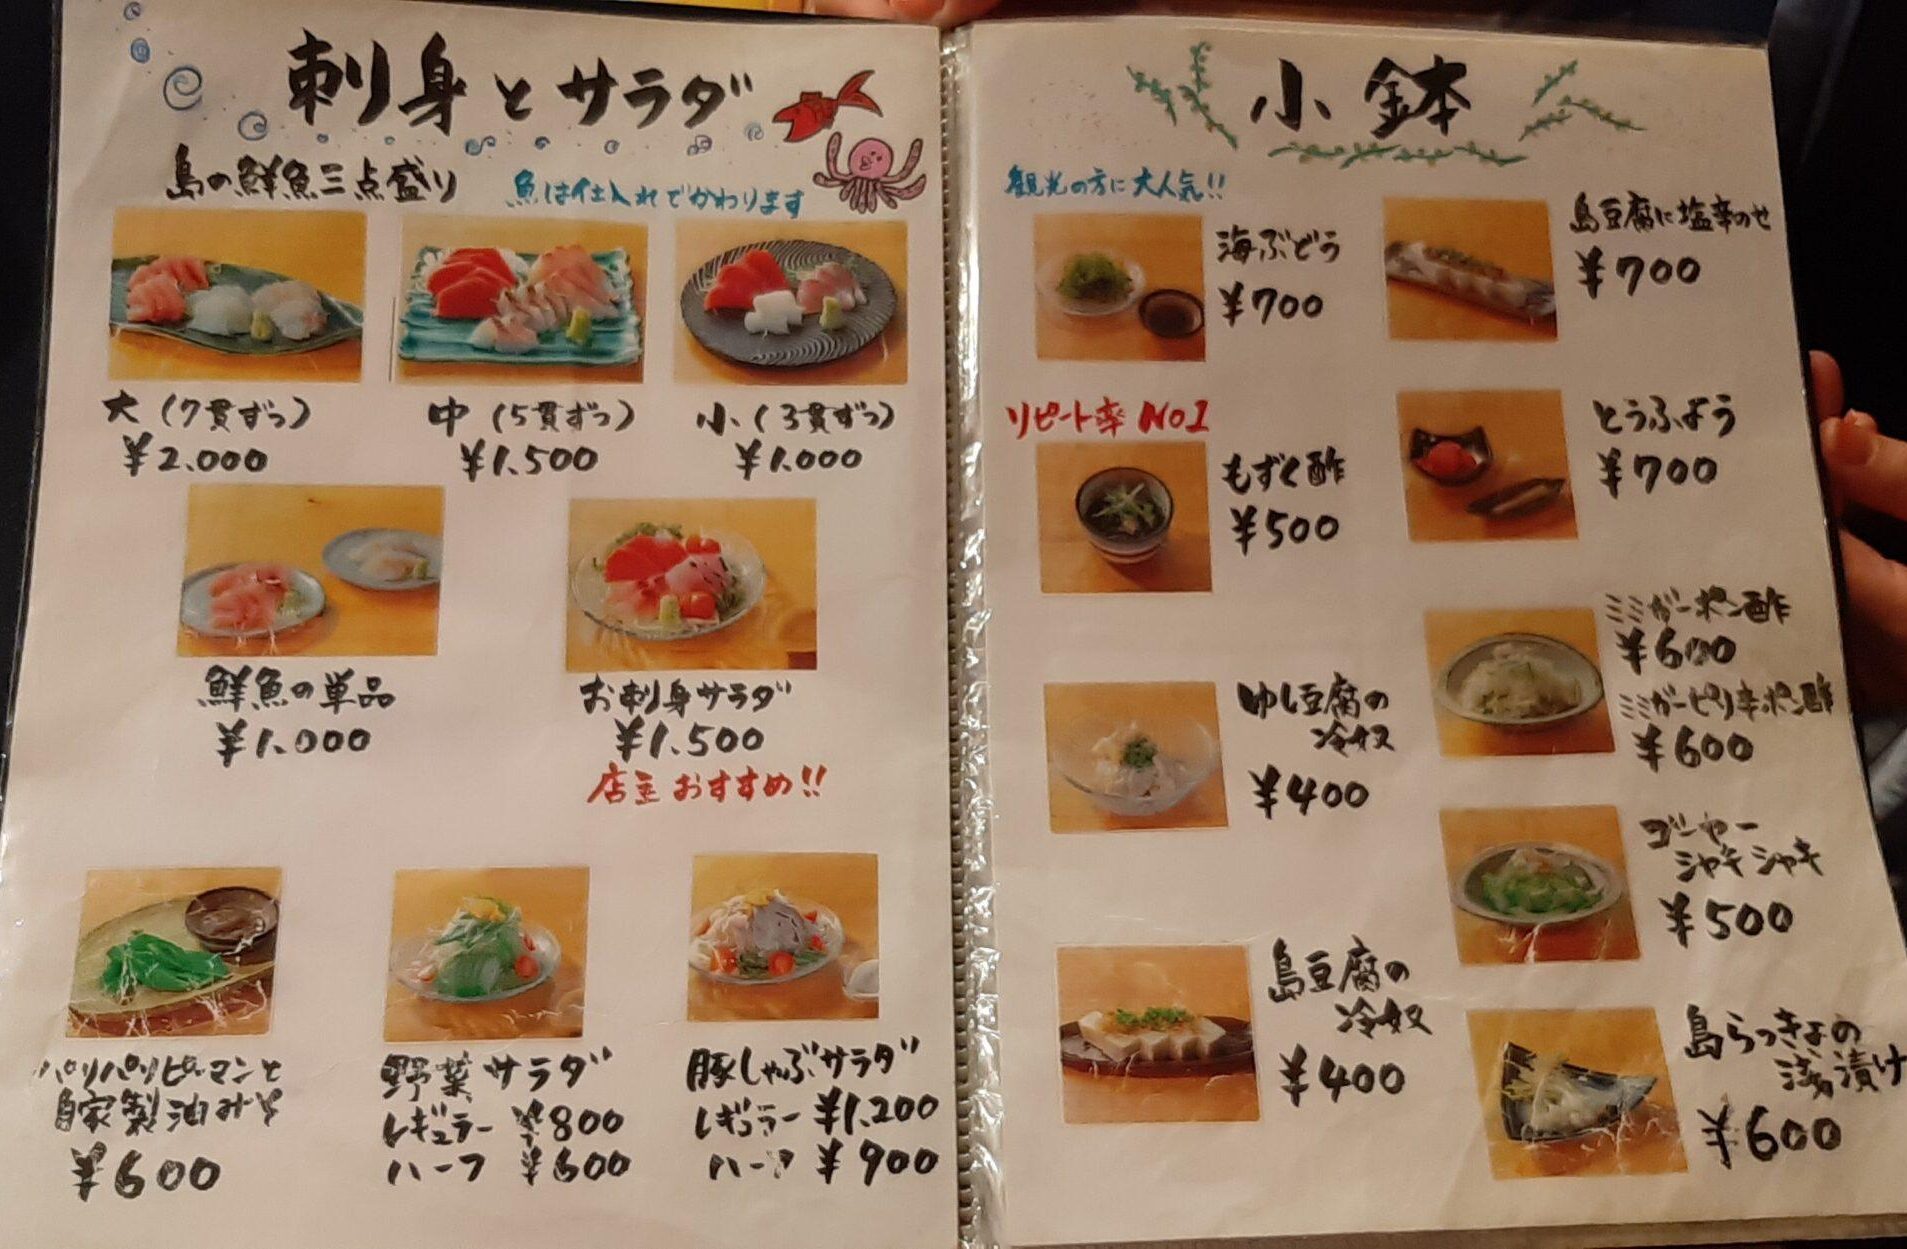 刺身とサラダ
島の鮮魚三点盛り
魚は仕入れでかわります
大(7貫ずつ)
¥2.000
中(5貫ずつ)
¥1.500
小(3貫ずつ)
¥1.000
鮮魚の単品
¥1.000
お刺身サラダ
¥1.500
店主おすすめ!!
パリパリピーマンと
自家製油みそ
¥600
野菜サラダ
レギュラー ¥800
ハーフ ¥600
豚しゃぶサラダ
レギュラー ¥1.200
ハーフ ¥900
小鉢
観光の方に大人気!!
海ぶどう
¥700
リピート率 No1
もずく酢
¥500
ゆし豆腐の
冷奴
¥400
島豆腐の
冷奴
¥400
島豆腐に塩辛のせ
¥700
とうふよう
¥700
ミミガーポン酢
¥600
ミミガーピリ辛ポン酢
¥600
ゴーヤー
シャキシャキ
¥500
島らっきょの
浅漬け
¥600